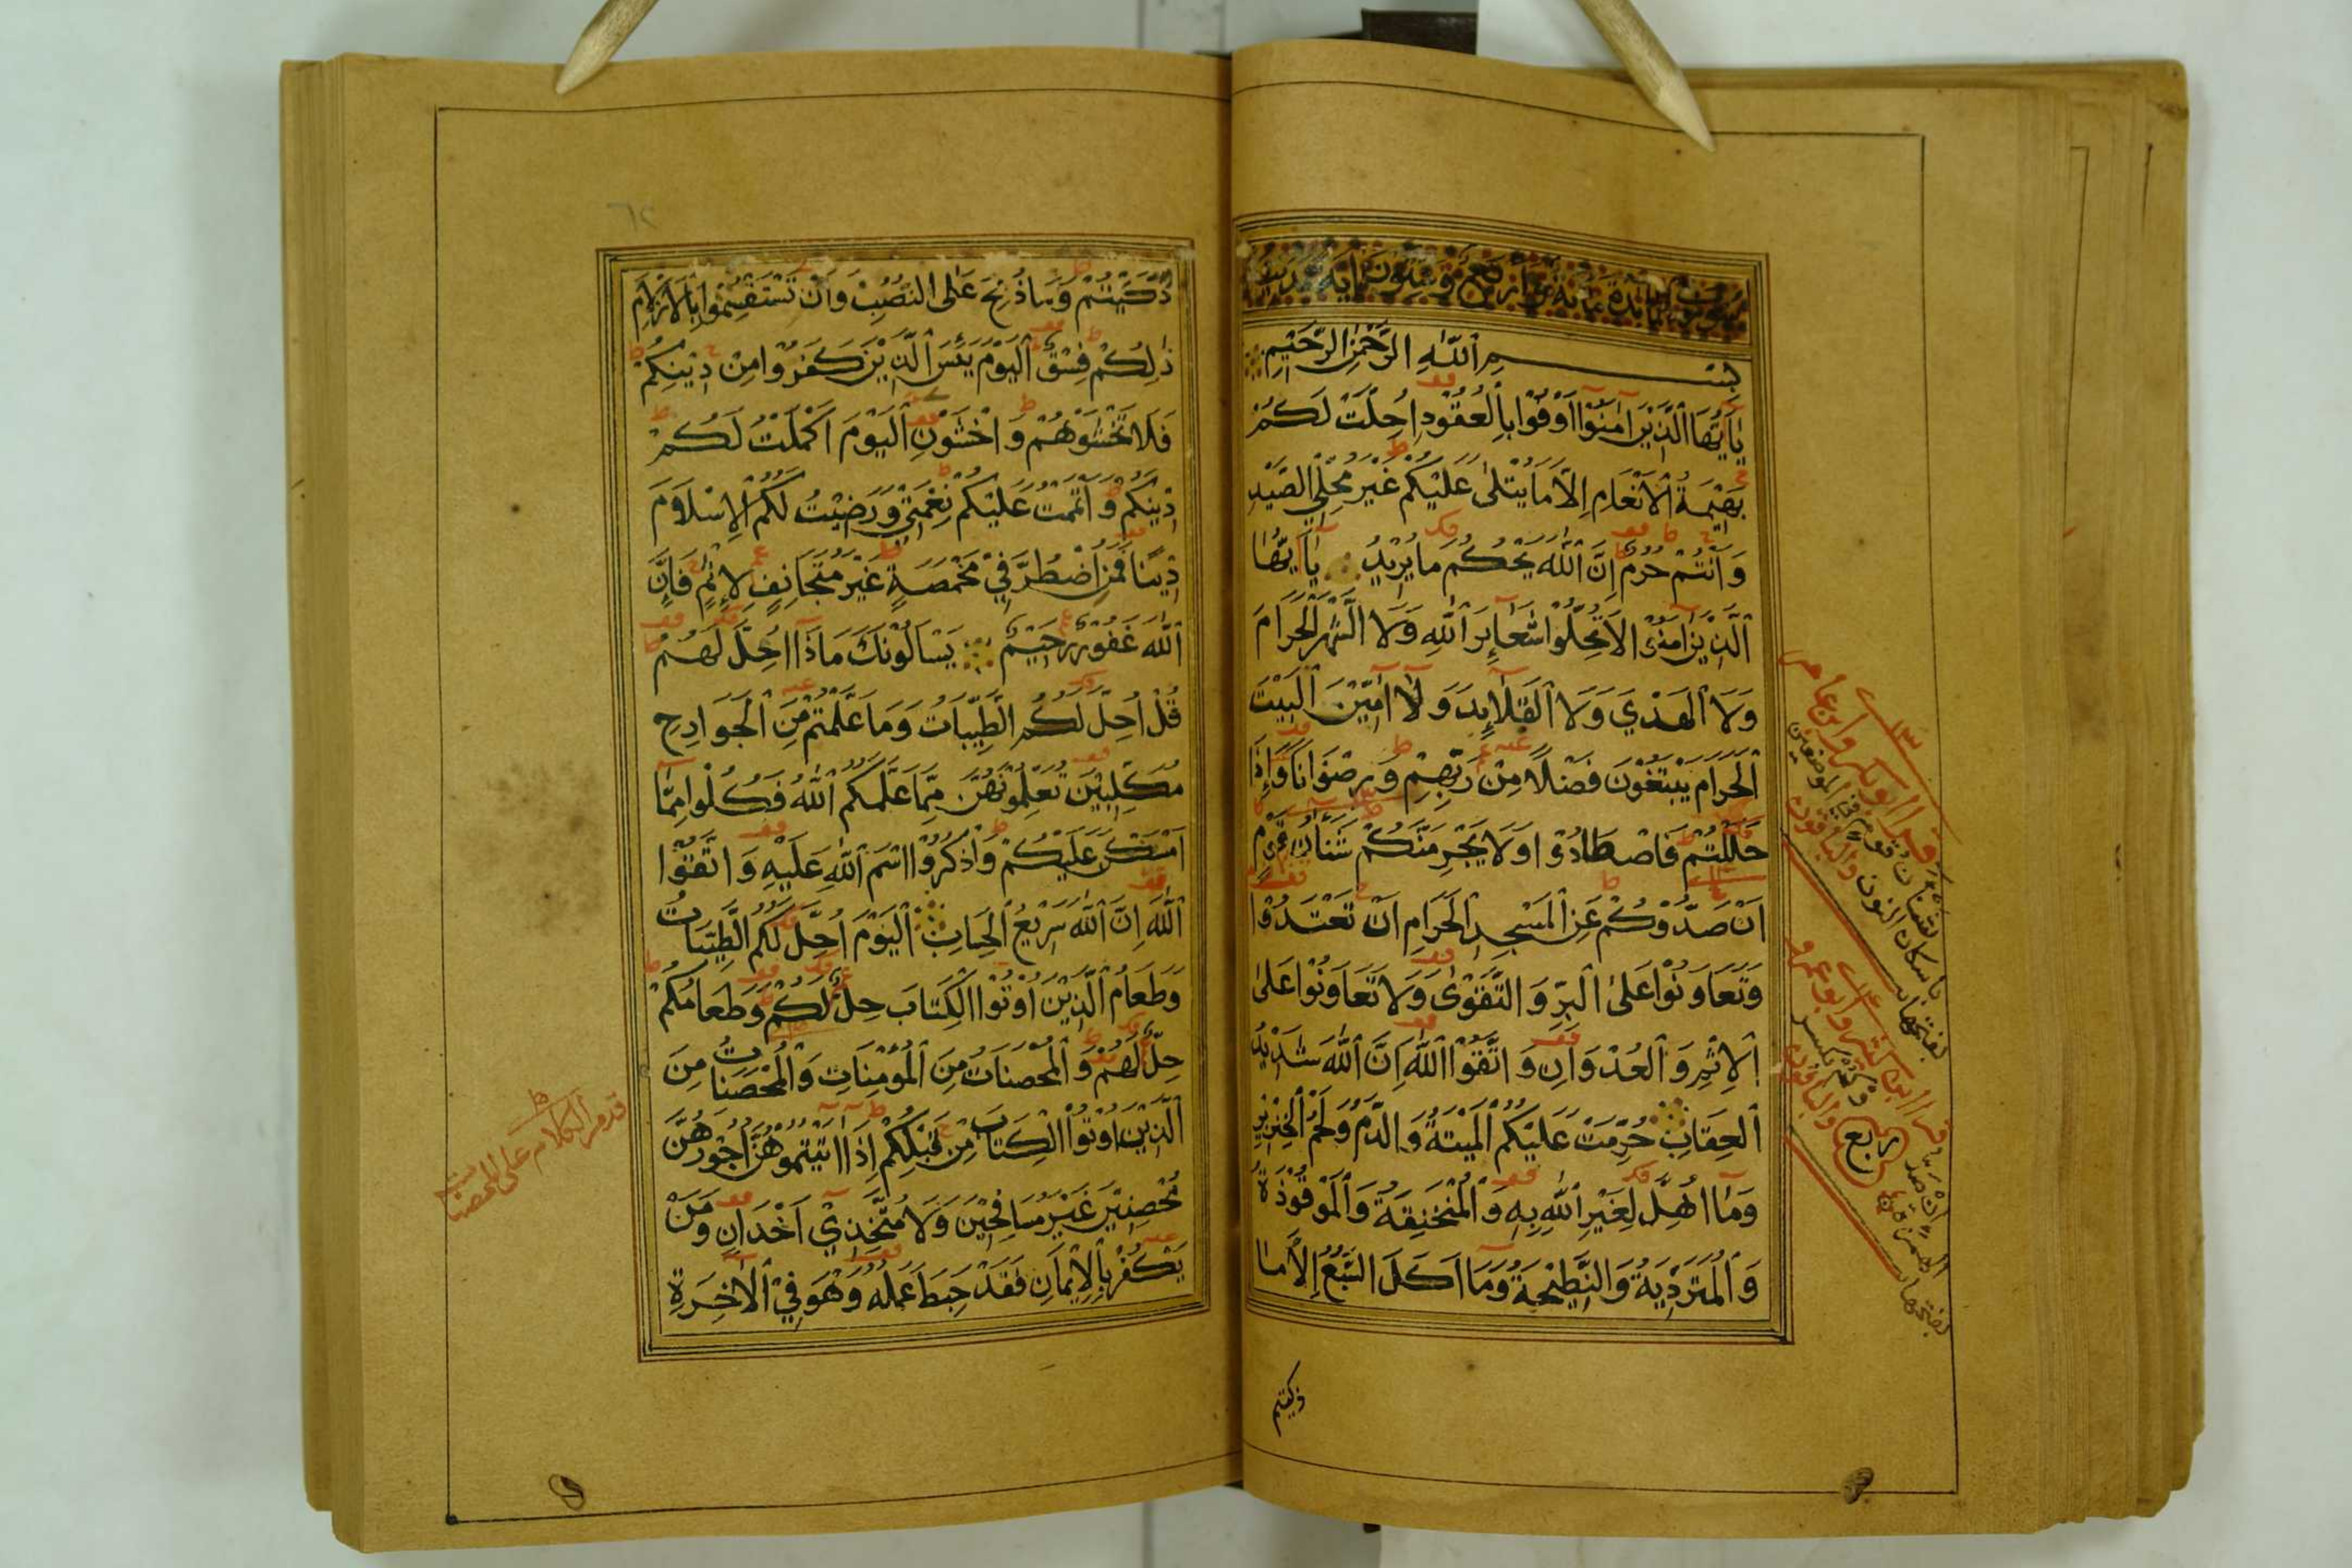 سورة المائدة مائة و اربع وعشرون اية مدنية
بِسْمِ ٱللّٰهِ الرَّحْمٰنِ الرَّحِيْمِ
يٰٓاَيُّهَا الَّذِيْنَ اٰمَنُوْٓا اَوْفُوْا بِالْعُقُوْدِ اُحِلَّتْ لَكُمْ
بَهِيْمَةُ الْاَنْعَامِ اِلَّا مَا يُتْلٰى عَلَيْكُمْ غَيْرَ مُحِلِّي الصَّيْدِ
وَاَنْتُمْ حُرُمٌ اِنَّ اللّٰهَ يَحْكُمُ مَا يُرِيْدُ يٰٓاَيُّهَا
الَّذِيْنَ اٰمَنُوْا لَا تُحِلُّوْا شَعَآئِرَ اللّٰهِ وَلَا الشَّهْرَ الْحَرَامَ
وَلَا الْهَدْيَ وَلَا الْقَلَآئِدَ وَلَآ اٰمِّيْنَ الْبَيْتَ
الْحَرَامَ يَبْتَغُوْنَ فَضْلًا مِنْ رَبِّهِمْ وَرِضْوَانًا وَاِذَا
حَلَلْتُمْ فَاصْطَادُوْا وَلَا يَجْرِمَنَّكُمْ شَنَاٰنُ قَوْمٍ
اَنْ صَدُّوْكُمْ عَنِ الْمَسْجِدِ الْحَرَامِ اَنْ تَعْتَدُوْا
وَتَعَاوَنُوْا عَلَى الْبِرِّ وَالتَّقْوٰى وَلَا تَعَاوَنُوْا عَلَى
الْاِثْمِ وَالْعُدْوَانِ وَاتَّقُوْا اللّٰهَ اِنَّ اللّٰهَ شَدِيْدُ
الْعِقَابِ حُرِّمَتْ عَلَيْكُمُ الْمَيْتَةُ وَالدَّمُ وَلَحْمُ الْخِنْزِيْرِ
وَمَآ اُهِلَّ لِغَيْرِ اللّٰهِ بِهٖ وَالْمُنْخَنِقَةُ وَالْمَوْقُوْذَةُ
وَالْمُتَرَدِّيَةُ وَالنَّطِيْحَةُ وَمَآ اَكَلَ السَّبُعُ اِلَّا مَا
ذكيتم
قرأ ابوبكر وابن عامر
شنان قوم في الموضعين
باسكان النون والباقون
بفتحها
قرا ابن كثير وابو عمرو
ان صدوكم بكسر
الهمزة والباقون
بفتحها
ربع
٦٢
ذَكَّيْتُمْ وَمَا ذُبِحَ عَلَى النُّصُبِ وَاَنْ تَسْتَقْسِمُوْا بِالْاَزْلَامِ
ذٰلِكُمْ فِسْقٌ اَلْيَوْمَ يَئِسَ الَّذِيْنَ كَفَرُوْا مِنْ دِيْنِكُمْ
فَلَا تَخْشَوْهُمْ وَاخْشَوْنِ اَلْيَوْمَ اَكْمَلْتُ لَكُمْ
دِيْنَكُمْ وَاَتْمَمْتُ عَلَيْكُمْ نِعْمَتِيْ وَرَضِيْتُ لَكُمُ الْاِسْلَامَ
دِيْنًا فَمَنِ اضْطُرَّ فِيْ مَخْمَصَةٍ غَيْرَ مُتَجَانِفٍ لِاِثْمٍ فَاِنَّ
اللّٰهَ غَفُوْرٌ رَحِيْمٌ يَسْاَلُوْنَكَ مَاذَآ اُحِلَّ لَهُمْ
قُلْ اُحِلَّ لَكُمُ الطَّيِّبَاتُ وَمَا عَلَّمْتُمْ مِنَ الْجَوَارِحِ
مُكَلِّبِيْنَ تُعَلِّمُوْنَهُنَّ مِمَّا عَلَّمَكُمُ اللّٰهُ فَكُلُوْا مِمَّآ
اَمْسَكْنَ عَلَيْكُمْ وَاذْكُرُوْا اسْمَ اللّٰهِ عَلَيْهِ وَاتَّقُوْا
اللّٰهَ اِنَّ اللّٰهَ سَرِيْعُ الْحِسَابِ اَلْيَوْمَ اُحِلَّ لَكُمُ الطَّيِّبَاتُ
وَطَعَامُ الَّذِيْنَ اُوْتُوْا الْكِتَابَ حِلٌّ لَكُمْ وَطَعَامُكُمْ
حِلٌّ لَهُمْ وَالْمُحْصَنَاتُ مِنَ الْمُؤْمِنَاتِ وَالْمُحْصَنَاتُ مِنَ
الَّذِيْنَ اُوْتُوْا الْكِتَابَ مِنْ قَبْلِكُمْ اِذَآ اٰتَيْتُمُوْهُنَّ اُجُوْرَهُنَّ
مُحْصِنِيْنَ غَيْرَ مُسَافِحِيْنَ وَلَا مُتَّخِذِيْ اَخْدَانٍ وَمَنْ
يَكْفُرْ بِالْاِيْمَانِ فَقَدْ حَبِطَ عَمَلُهٗ وَهُوَ فِي الْاٰخِرَةِ
قد مر الكلام على المحصنات